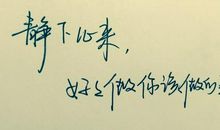 静下心来,
好好做你该做的